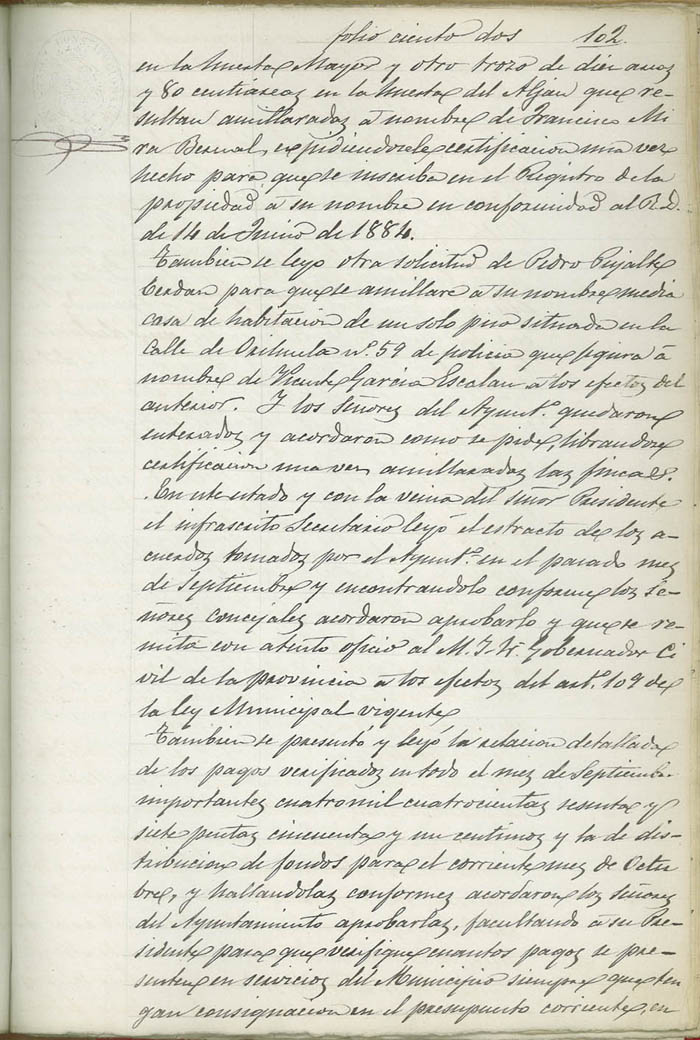 folio ciento dos 102.
en la huerta Mayor y otro trozo de diez areas
y 80 centiáreas en la huerta del Aljan que re-
sultan amillaradas á nombre de Francisco Mi
ra Bernal, expidiendosele certificacion una vez
hecho para que se inscriba en el Registro de la
propiedad á su nombre en conformidad al R.D.
de 14 de Junio de 1884.
Tambien se leyó otra solicitud de Pedro Pujalte
Cerdan para que se amillare á su nombre media
casa de habitacion de un solo piso situada en la
Calle de Orihuela nº. 59 de policia que figura á
nombre de Vicente Garcia Escolan á los efectos del
anterior. Y los Señores del Ayuntº. quedaron
enterados y acordaron como se pide, librandose
certificacion una vez amillaradas las fincas.
En este estado y con la venia del señor Presidente
el infrascrito Secretario leyó el estracto de los a-
cuerdos tomados por el Ayuntº. en el pasado mes
de Septiembre y encontrandolo conforme los Se-
ñores Concejales acordaron aprobarlo y que se re-
mita con atento oficio al M. I. Sr. Gobernador Ci
vil de la provincia á los efectos del artº. 109 de
la ley Municipal vigente
Tambien se presentó y leyó la relacion detallada
de los pagos verificados en todo el mes de Septiembre
importantes cuatro mil cuatrocientas sesenta y
siete pesetas cincuenta y un centimos y la de dis-
tribucion de fondos para el corriente mes de Octu
bre, y hallandolas conformes acordaron los señores
del Ayuntamiento aprobarlas, facultando á su Pre-
sidente para que verifique cuantos pagos se pre-
senten en servicios del Municipio siempre que ten
gan consignacion en el presupuesto corriente, en